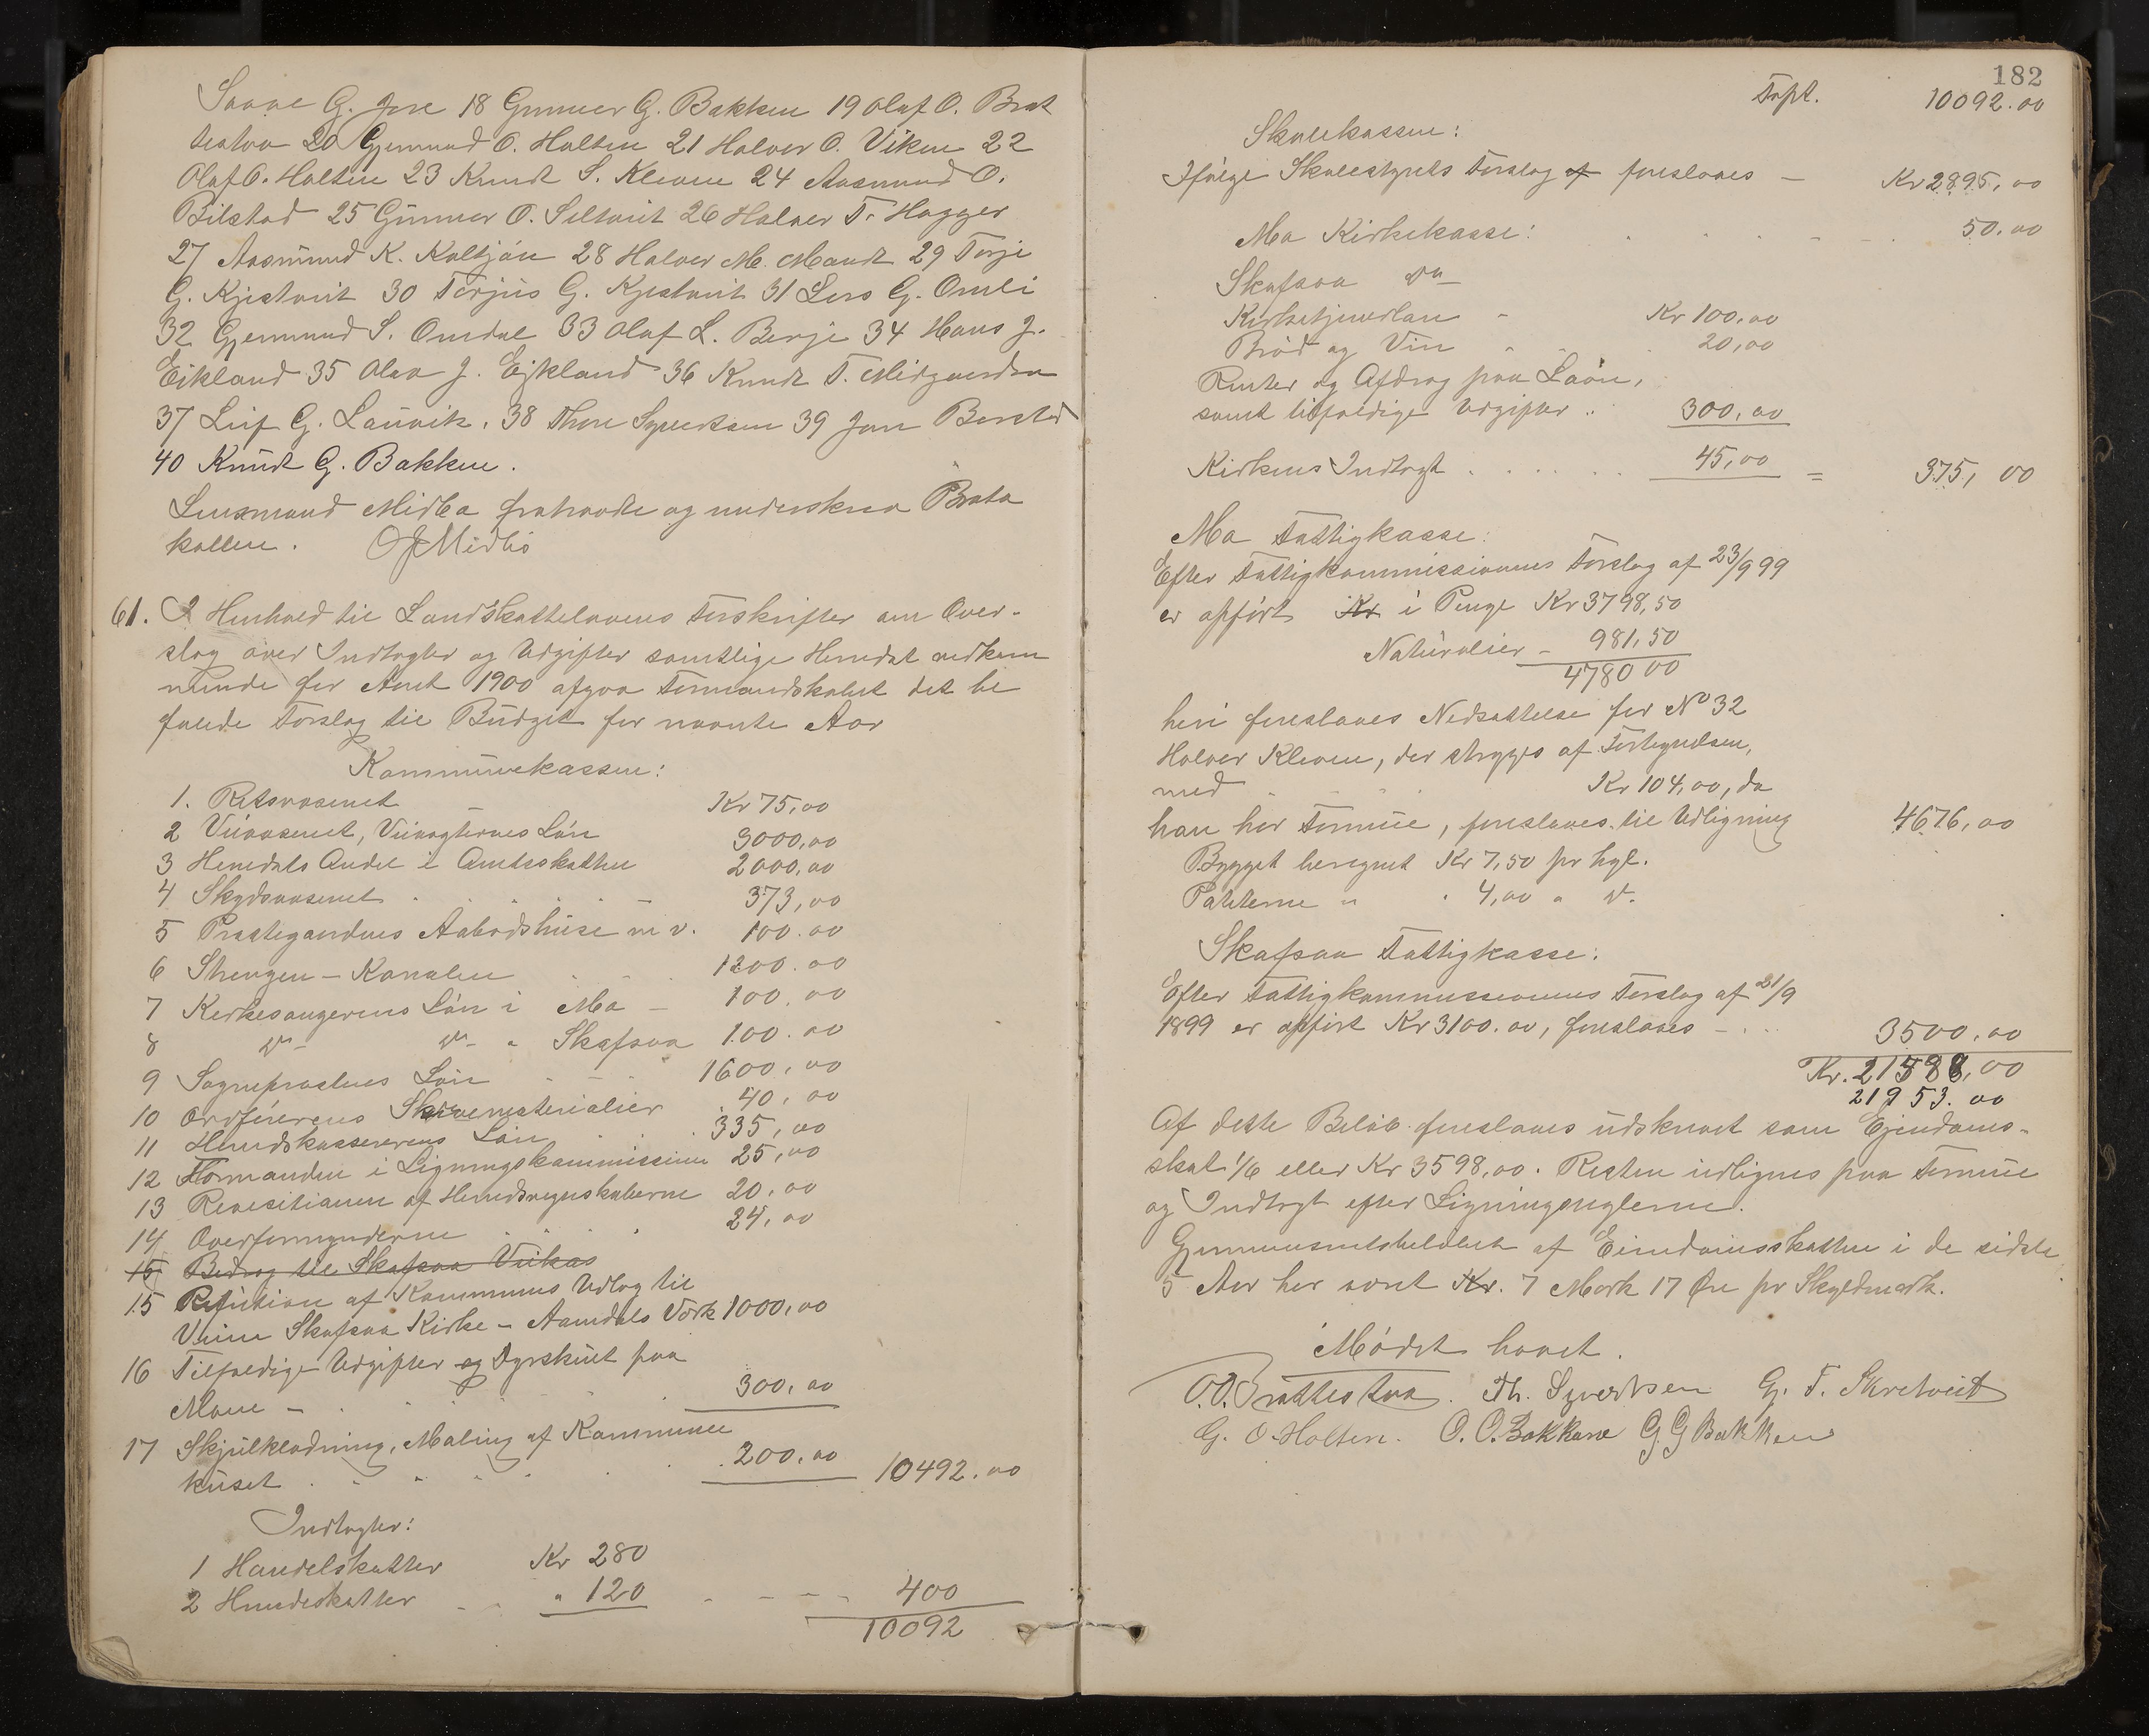 G. Jore 18 Gunner G. Bakken 19 Olaf O. Brat
testaa 20 Gjermund O. Holten 21 Halvor O. Viken 22
Olaf O. Holten 23 Knudt S. Kleven 24 Aasmund O.
Bilstad 25 Gunner O. Seltveit 26 Halvor T. Hegger
27 Aasmund K. Kaltjøn 28 Halvor M. Mandt 29 Torje
G. Kjestveit 30 Torjus G. Kjestveit 31 Lars G. Omli
32 Gjermund S. Omdal 33 Olaf L. Berge 34 Hans J.
Eikland 35 Olav J. Eikland 36 Knudt T. Midgaarden
37 Leif G. Lauvik. 38 Thore Syvertsen 39 Jon Berstad
40 Knudt G. Bakken.
Lensmand Midbø fratraadte og underskrev Proto
kollen. O J Midbö
61. I Henhold til Landskattelovens Forskrifter om Over-
slag over Indtægter og Udgifter samtlige Herredet vedkom
mende for Aaret 1900 afgav Formandskabet det be
falede Forslag til Budget for nævnte Aar
Kommunekassen:
1. Retsvæsenet Kr 75,00
2 Veivæsenet, Veivogternes Løn 3000,00
3 Herredets Andel i Amtsskatten 2000,00
4 Skydsvæsenet 373,00
5 Præstegaardens Aabodshuse m v. 100.00
6 Strengen - Kanalen 1200.00
7 Kirkesangerens Løn i Mo - 100.00
8 do - do - " Skafsaa 100.00
9 Sognepræstens Løn 1600,00
10 Ordførerens Skrivematerialier 40,00
11 Herredskassererens Løn 335,00
12 Formanden i Ligningskommissionen 25,00
13 Revisionen af Herredsregnskaberne 20.00
14 Overformynderne 24,00
15 Bidrag til Skafsaa Veikas
15 Refusion af Kommunens Udlæg til
Veien Skafsaa Kirke - Aamdals Værk 1000,00
16 Tilfældige Udgifter og Dyrskuet paa
Moen - 300,00
17 Skjulklædning, Maling af Kommune
huset 200,00 10492.00
Indtægter:
1 Handelskatter Kr 280
2 Hundeskatter " 120 400
10092
182
Trpt. 10092.00
Skolekassen:
Ifølge Skolestyrets Forslag af foreslaaes - Kr 2895,00
Mo Kirkekasse: 50.00
Skafsaa do -
Kirketjenerløn - Kr 100,00
Brød og Vin 20,00
Renter og Afdrag paa Laan,
samt tilfældige Udgifter 300,00
Kirkens Indtægt 45,00 = 375,00
Mo Fattigkasse:
Efter Fattigkommissionens Forslag af 23/9 99
er opført Kr i Penge Kr 3798,50
Naturalier - 981,50
4780 00
heri foreslaaes Nedsættelse for No 32
Halvor Kleven, der stryges af Fortegnelsen,
med Kr 104,00, da
han har Formue, foreslaaes til Udligning 4676,00
Bygget beregnet Kr 7,50 pr hgl.
Poteterne " " 4,00 " do.
Skafsaa Fattigkasse:
Efter Fattigkommissionens Forslag af 21/9
1899 er opført Kr 3100.00, foreslaaes - 3500.00
Kr. 21588,00
21953.00
Af dette Beløb foreslaaes udskrevet som Ejendoms-
skat 1/6 eller Kr 3598,00. Resten udlignes paa Formue
og Indtægt efter Ligningsreglerne.
Gjennemsnitsbeløbet af Eiendomsskatten i de sidste
5 Aar har været Kr. 7 Mark 17 Øre pr Skyldmark.
Mødet hævet.
O. O. Brattestaa. Th. Syvertsen G. T. Skretveit
G. O Holten. O. O. Bakkane G G Bakken